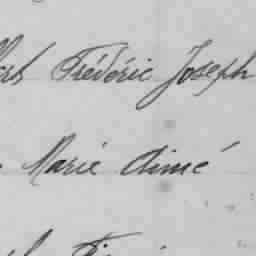 Frédéric Joseph
Marie Aimé